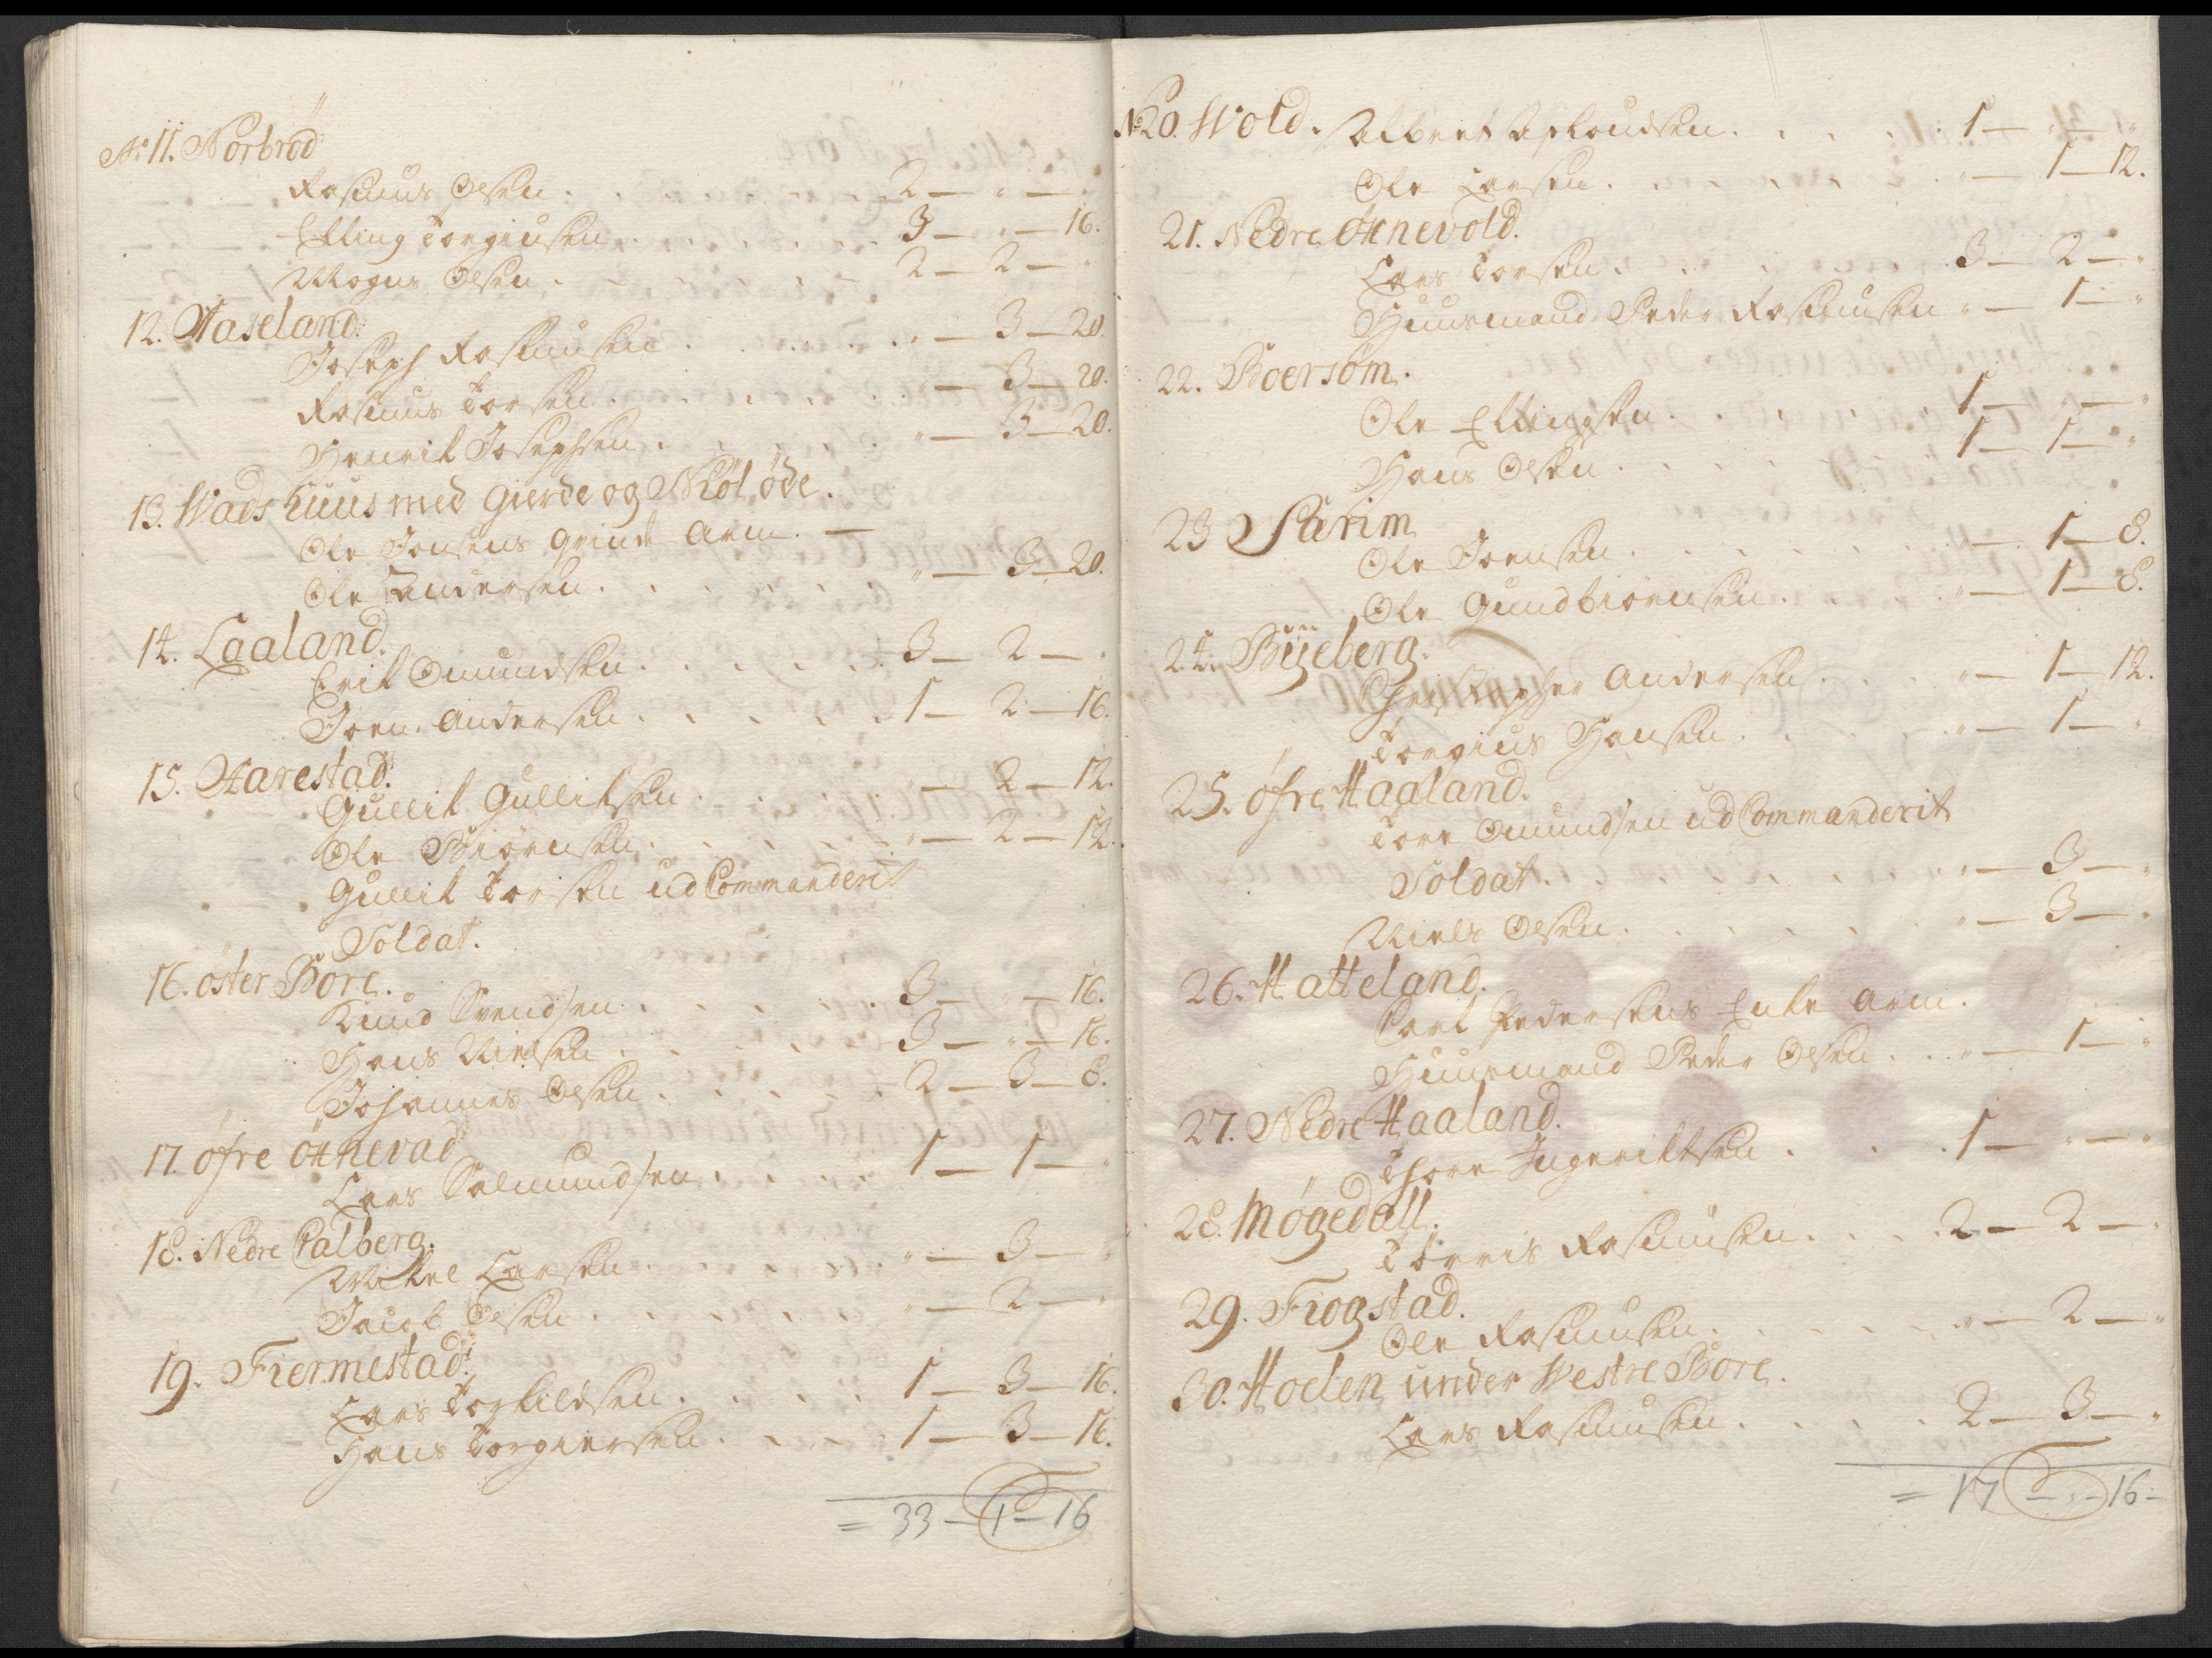 No 11. Norbrød
Rasmus Olsen . . . . . 2 — " — "
Elling Torgiusen . . . . . 3 — " — 16.
Mogns Olsen . . . . 2 — 2 — "
12. Haseland.
Joseph Rasmusen . . . . . " — 3 — 20.
Rasmus Torsen . . . . . " — 3 — 20.
Henrik Josephsen . . . . . " — 3 — 20.
13. Wadshuus med Gierde og Kiøl øde.
Ole Jensens grinde arm. —
Ole Andersen . . . . . " — 3 — 20.
14. Laaland.
Erik Omundsen . . . . . 3 — 2 — "
Joen Andersen . . . . . 1 — 2 — 16.
15. Harestad.
Gullik Gulliksen . . . . . " — 2 — 12.
Ole Biørnsen . . . . . " — 2 — 12.
Gullik Torsen ud Commanderit
Soldat.
16. öster Bore.
Knud Svendsen . . . . . 3 — " — 16.
Hans Nielsen . . . . . 3 — " — 16.
Johannes Olsen . . . . . 2 — 3 — 8.
17. öfre Ornevad
Lars Salmundsen . . . . . 1 — 1 — "
18. Nedre Palberg.
Mikel Larsen . . . . . " — 3 — "
Jacob Olsen . . . . . " — 2 — "
19. Fiermestad.
Lars Torkildsen . . . . . 1 — 3 — 16.
Hans Torgiersen . . . . . 1 — 3 — 16.
= 33 — 1 — 16
No 20. Wold. Albret Asloudsen . . . . . 1 — " — "
Ole Larsen . . . . . " — 1 — 12.
21. Nedre Ornevold.
Lars Torsen . . . . . 3 — 2 — "
Huusmand Peder Rasmusen " — 1 — "
22. Boersøm.
Ole Ellingsen . . . . . 1 — " — "
Hans Olsen . . . . . 1 — 1 — "
23 Særim
Ole Joensen . . . . . " — 1 — 8.
Ole Gundbiørnsen . . . . " — 1 — 8.
24. Bÿeberg.
Christopher Andersen . . . . " — 1 — 12.
Torgius Hansen . . . . . " — 1 — "
25. öfre Haaland.
Tore Omundsen ud Commanderit
Soldat . . . . . " — 3 — "
Niels Olsen . . . . . " — 3 — "
26. Hatteland.
Carl Pedersens Enke arm.
Huusmand Peder Olsen . . . " — 1 — "
27. Nedre Haaland.
Thore Ingeriktsen . . . 1 — " — "
28. Møgedall.
Tørris Rasmusen . . . . 2 — 2 — "
29. Fiogstad.
Ole Rasmusen . . . . . " — 2 — "
30. Hoelen under Westre Bore.
Lars Rasmusen . . . . . 2 — 3 — "
= 17 — " — 16 —